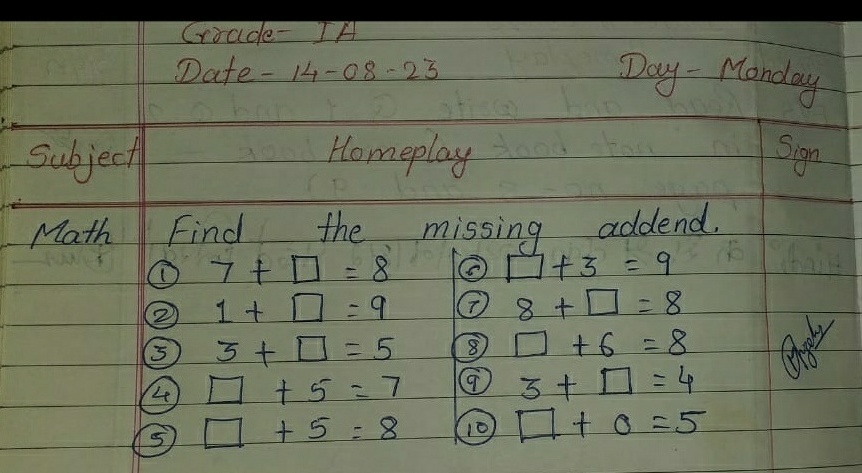 Grade- IA
Date - 14-08-23 Day - Monday
Subject Homeplay Sign
Math Find the missing addend.
① 7 + □ = 8
② 1 + □ = 9
③ 3 + □ = 5
④ □ + 5 = 7
⑤ □ + 5 = 8
⑥ □ + 3 = 9
⑦ 8 + □ = 8
⑧ □ + 6 = 8
⑨ 3 + □ = 4
⑩ □ + 0 = 5